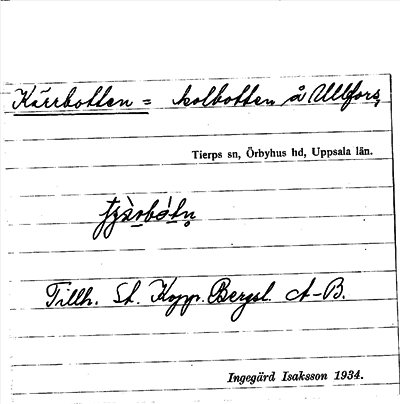 Kärrbotten = kolbotten å Ullfors,
Tierps sn, Örbyhus hd, Uppsala län.
Tillh. St. Kopp. Bergsl. A-B.
Ingegärd Isaksson 1934.